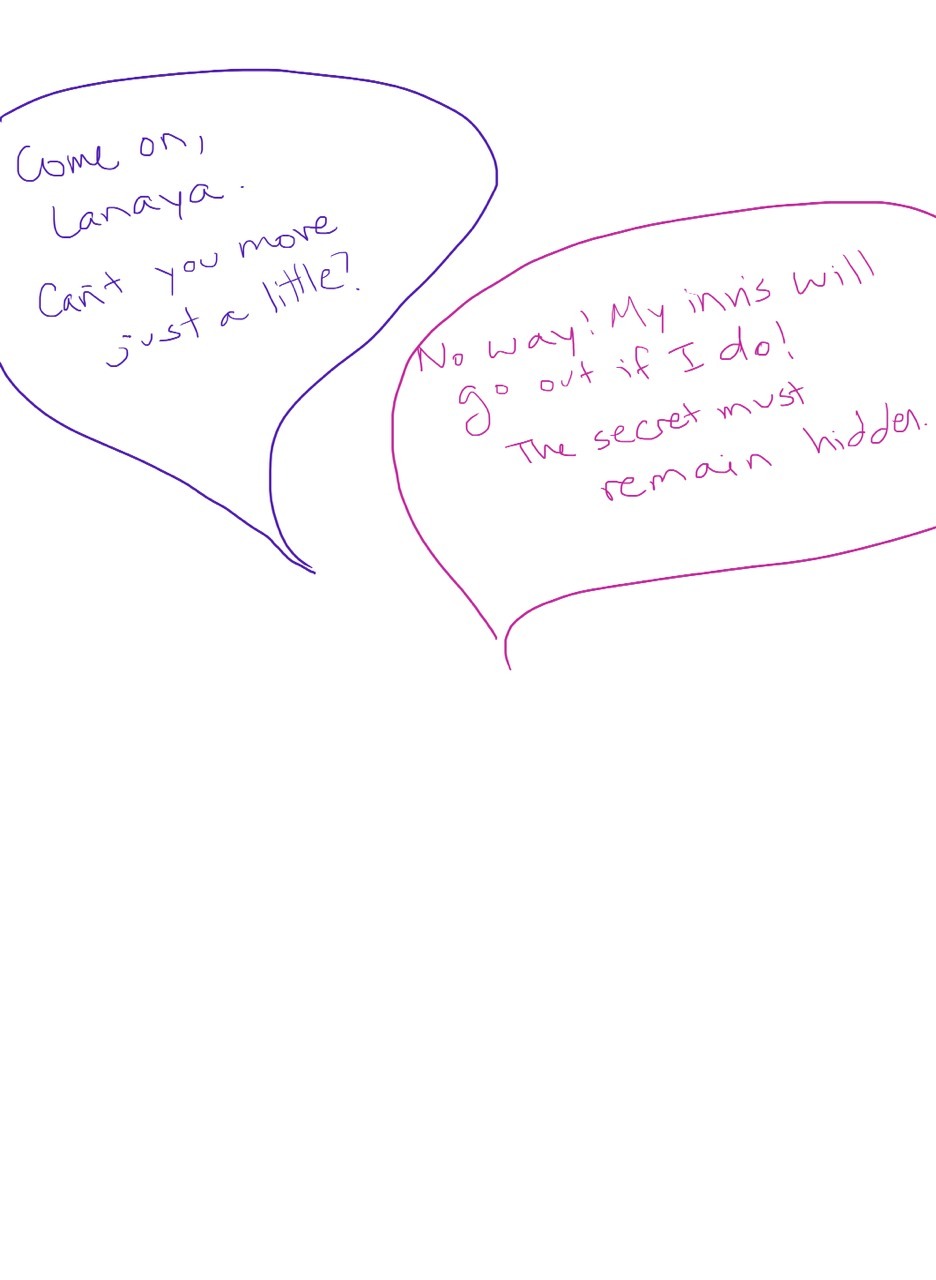 Come on,
Lanaya.
Can't you move
just a little?
No way! My invis will
go out if I do!
The secret must
remain hidden.